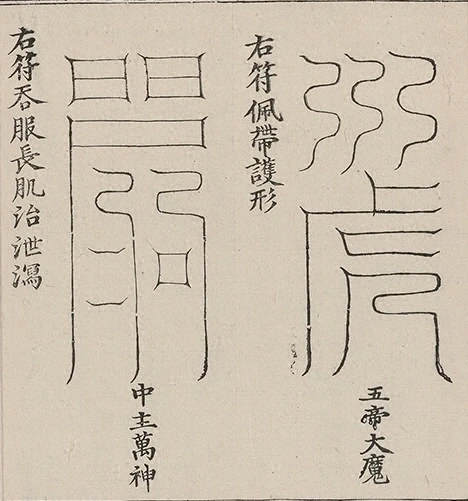 五帝大魔
右符佩帶護形
中主萬神
右符吞服長肌治泄瀉